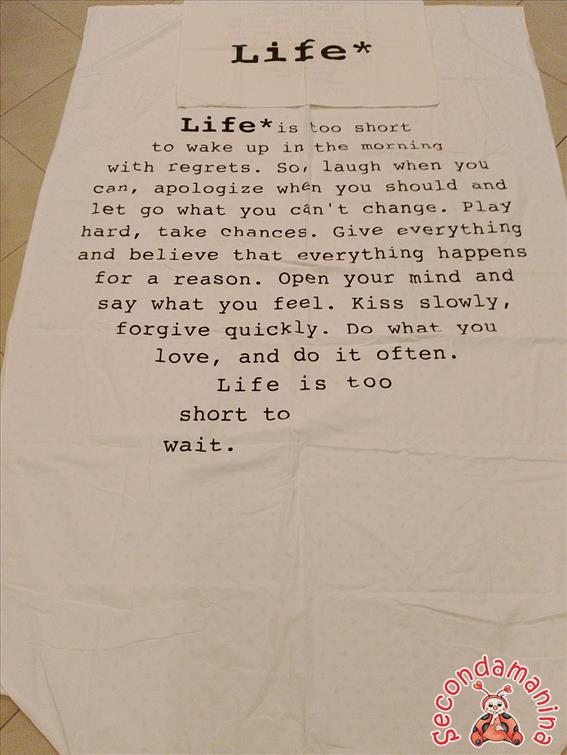 Life*
Life* is too short
to wake up in the morning
with regrets. So, laugh when you
can, apologize when you should and
let go what you can't change. Play
hard, take chances. Give everything
and believe that everything happens
for a reason. Open your mind and
say what you feel. Kiss slowly,
forgive quickly. Do what you
love, and do it often.
Life is too
short to
wait.
Secondamanina